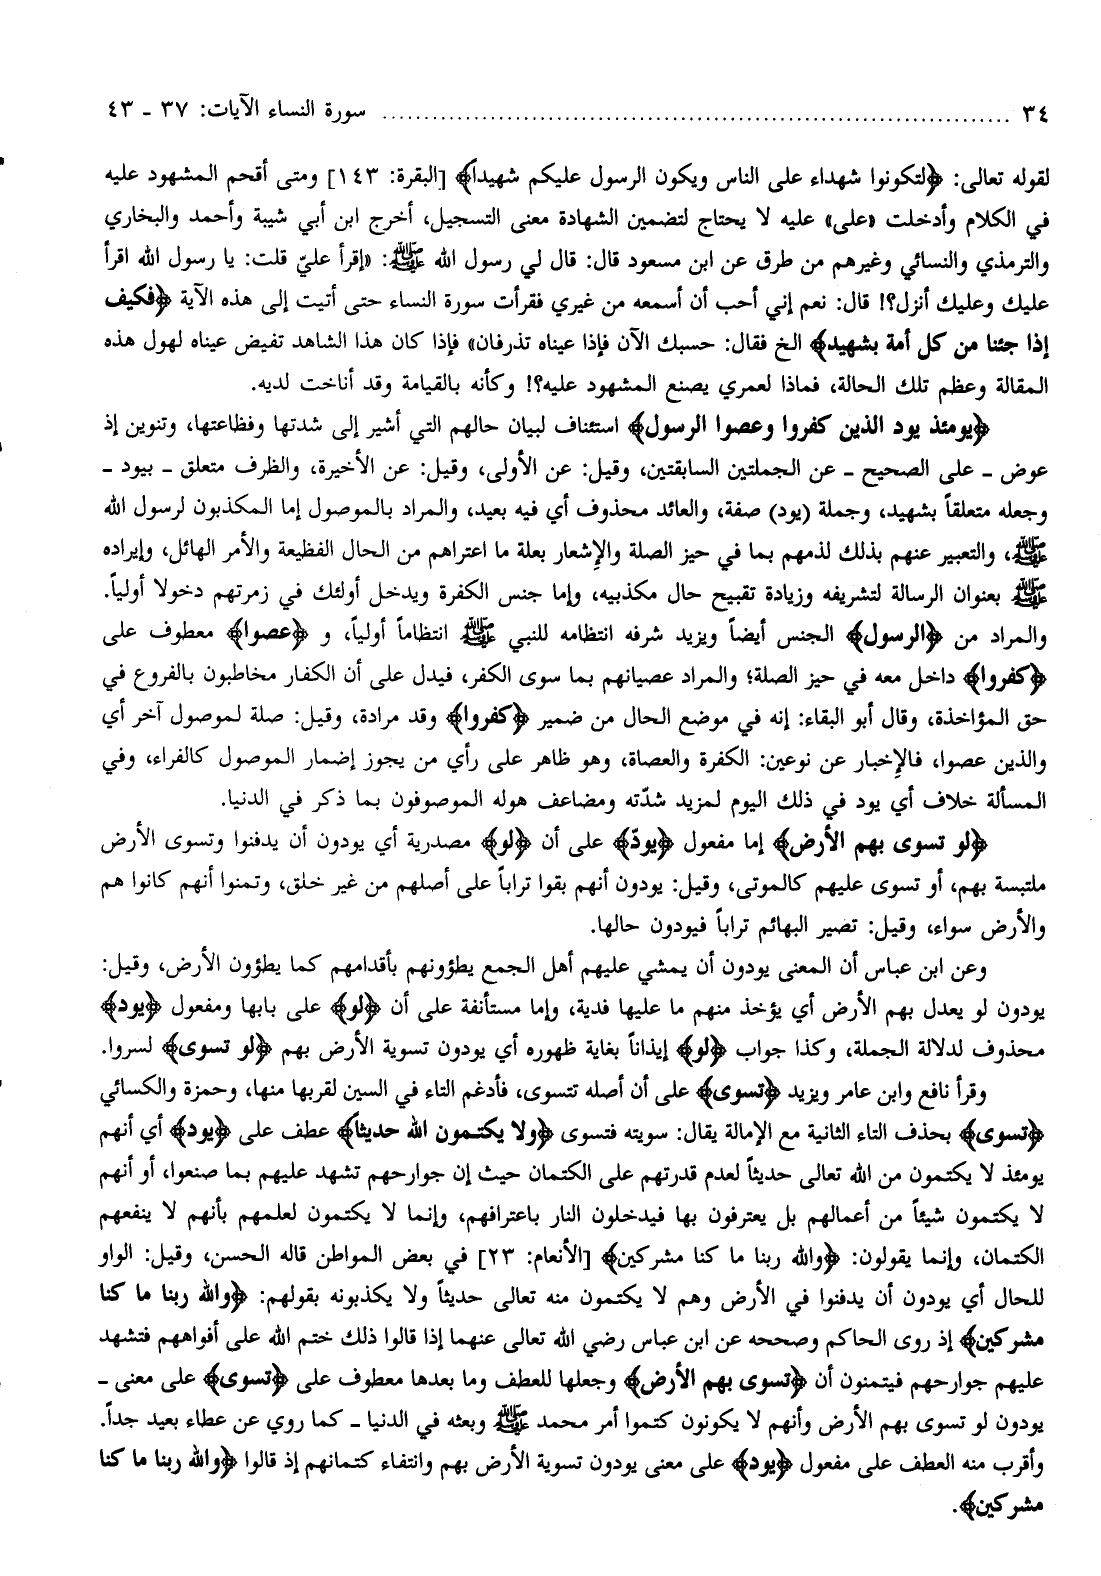 ٣٤ ........................................................................... سورة النساء الآيات: ٣٧ - ٤٣
لقوله تعالى: ﴿لتكونوا شهداء على الناس ويكون الرسول عليكم شهيداً﴾ [البقرة: ١٤٣] ومتى أقحم المشهود عليه
في الكلام وأدخلت «على» عليه لا يحتاج لتضمين الشهادة معنى التسجيل، أخرج ابن أبي شيبة وأحمد والبخاري
والترمذي والنسائي وغيرهم من طرق عن ابن مسعود قال: قال لي رسول الله ﷺ: «إقرأ عليّ قلت: يا رسول الله اقرأ
عليك وعليك أنزل؟! قال: نعم إني أحب أن أسمعه من غيري فقرأت سورة النساء حتى أتيت إلى هذه الآية ﴿فكيف
إذا جئنا من كل أمة بشهيد﴾ الخ فقال: حسبك الآن فإذا عيناه تذرفان» فإذا كان هذا الشاهد تفيض عيناه لهول هذه
المقالة وعظم تلك الحالة، فماذا لعمري يصنع المشهود عليه؟! وكأنه بالقيامة وقد أناخت لديه.
﴿يومئذ يود الذين كفروا وعصوا الرسول﴾ استئناف لبيان حالهم التي أشير إلى شدتها وفظاعتها، وتنوين إذ
عوض ـ على الصحيح ـ عن الجملتين السابقتين، وقيل: عن الأولى، وقيل: عن الأخيرة، والظرف متعلق ـ بيود ـ
وجعله متعلقاً بشهيد، وجملة (يود) صفة، والعائد محذوف أي فيه بعيد، والمراد بالموصول إما المكذبون لرسول الله
ﷺ، والتعبير عنهم بذلك لذمهم بما في حيز الصلة والإِشعار بعلة ما اعتراهم من الحال الفظيعة والأمر الهائل، وإيراده
ﷺ بعنوان الرسالة لتشريفه وزيادة تقبيح حال مكذبيه، وإما جنس الكفرة ويدخل أولئك في زمرتهم دخولا أولياً.
والمراد من ﴿الرسول﴾ الجنس أيضاً ويزيد شرفه انتظامه للنبي ﷺ انتظاماً أولياً، و ﴿عصوا﴾ معطوف على
﴿كفروا﴾ داخل معه في حيز الصلة؛ والمراد عصيانهم بما سوى الكفر، فيدل على أن الكفار مخاطبون بالفروع في
حق المؤاخذة، وقال أبو البقاء: إنه في موضع الحال من ضمير ﴿كفروا﴾ وقد مرادة، وقيل: صلة لموصول آخر أي
والذين عصوا، فالإِخبار عن نوعين: الكفرة والعصاة، وهو ظاهر على رأي من يجوز إضمار الموصول كالفراء، وفي
المسألة خلاف أي يود في ذلك اليوم لمزيد شدّته ومضاعف هوله الموصوفون بما ذكر في الدنيا.
﴿لو تسوى بهم الأرض﴾ إما مفعول ﴿يودّ﴾ على أن ﴿لو﴾ مصدرية أي يودون أن يدفنوا وتسوى الأرض
ملتبسة بهم، أو تسوى عليهم كالموتى، وقيل: يودون أنهم بقوا تراباً على أصلهم من غير خلق، وتمنوا أنهم كانوا هم
والأرض سواء، وقيل: تصير البهائم تراباً فيودون حالها.
وعن ابن عباس أن المعنى يودون أن يمشي عليهم أهل الجمع يطؤونهم بأقدامهم كما يطؤون الأرض، وقيل:
يودون لو يعدل بهم الأرض أي يؤخذ منهم ما عليها فدية، وإما مستأنفة على أن ﴿لو﴾ على بابها ومفعول ﴿يود﴾
محذوف لدلالة الجملة، وكذا جواب ﴿لو﴾ إيذاناً بغاية ظهوره أي يودون تسوية الأرض بهم ﴿لو تسوى﴾ لسروا.
وقرأ نافع وابن عامر ويزيد ﴿تسوى﴾ على أن أصله تتسوى، فأدغم التاء في السين لقربها منها، وحمزة والكسائي
﴿تسوى﴾ بحذف التاء الثانية مع الإمالة يقال: سويته فتسوى ﴿ولا يكتمون الله حديثاً﴾ عطف على ﴿يود﴾ أي أنهم
يومئذ لا يكتمون من الله تعالى حديثاً لعدم قدرتهم على الكتمان حيث إن جوارحهم تشهد عليهم بما صنعوا، أو أنهم
لا يكتمون شيئاً من أعمالهم بل يعترفون بها فيدخلون النار باعترافهم، وإنما لا يكتمون لعلمهم بأنهم لا ينفعهم
الكتمان، وإنما يقولون: ﴿والله ربنا ما كنا مشركين﴾ [الأنعام: ٢٣] في بعض المواطن قاله الحسن، وقيل: الواو
للحال أي يودون أن يدفنوا في الأرض وهم لا يكتمون منه تعالى حديثاً ولا يكذبونه بقولهم: ﴿والله ربنا ما كنا
مشركين﴾ إذ روى الحاكم وصححه عن ابن عباس رضي الله تعالى عنهما إذا قالوا ذلك ختم الله على أفواههم فتشهد
عليهم جوارحهم فيتمنون أن ﴿تسوى بهم الأرض﴾ وجعلها للعطف وما بعدها معطوف على ﴿تسوى﴾ على معنى ـ
يودون لو تسوى بهم الأرض وأنهم لا يكونون كتموا أمر محمد ﷺ وبعثه في الدنيا ـ كما روي عن عطاء بعيد جداً.
وأقرب منه العطف على مفعول ﴿يود﴾ على معنى يودون تسوية الأرض بهم وانتفاء كتمانهم إذ قالوا ﴿والله ربنا ما كنا
مشركين﴾.